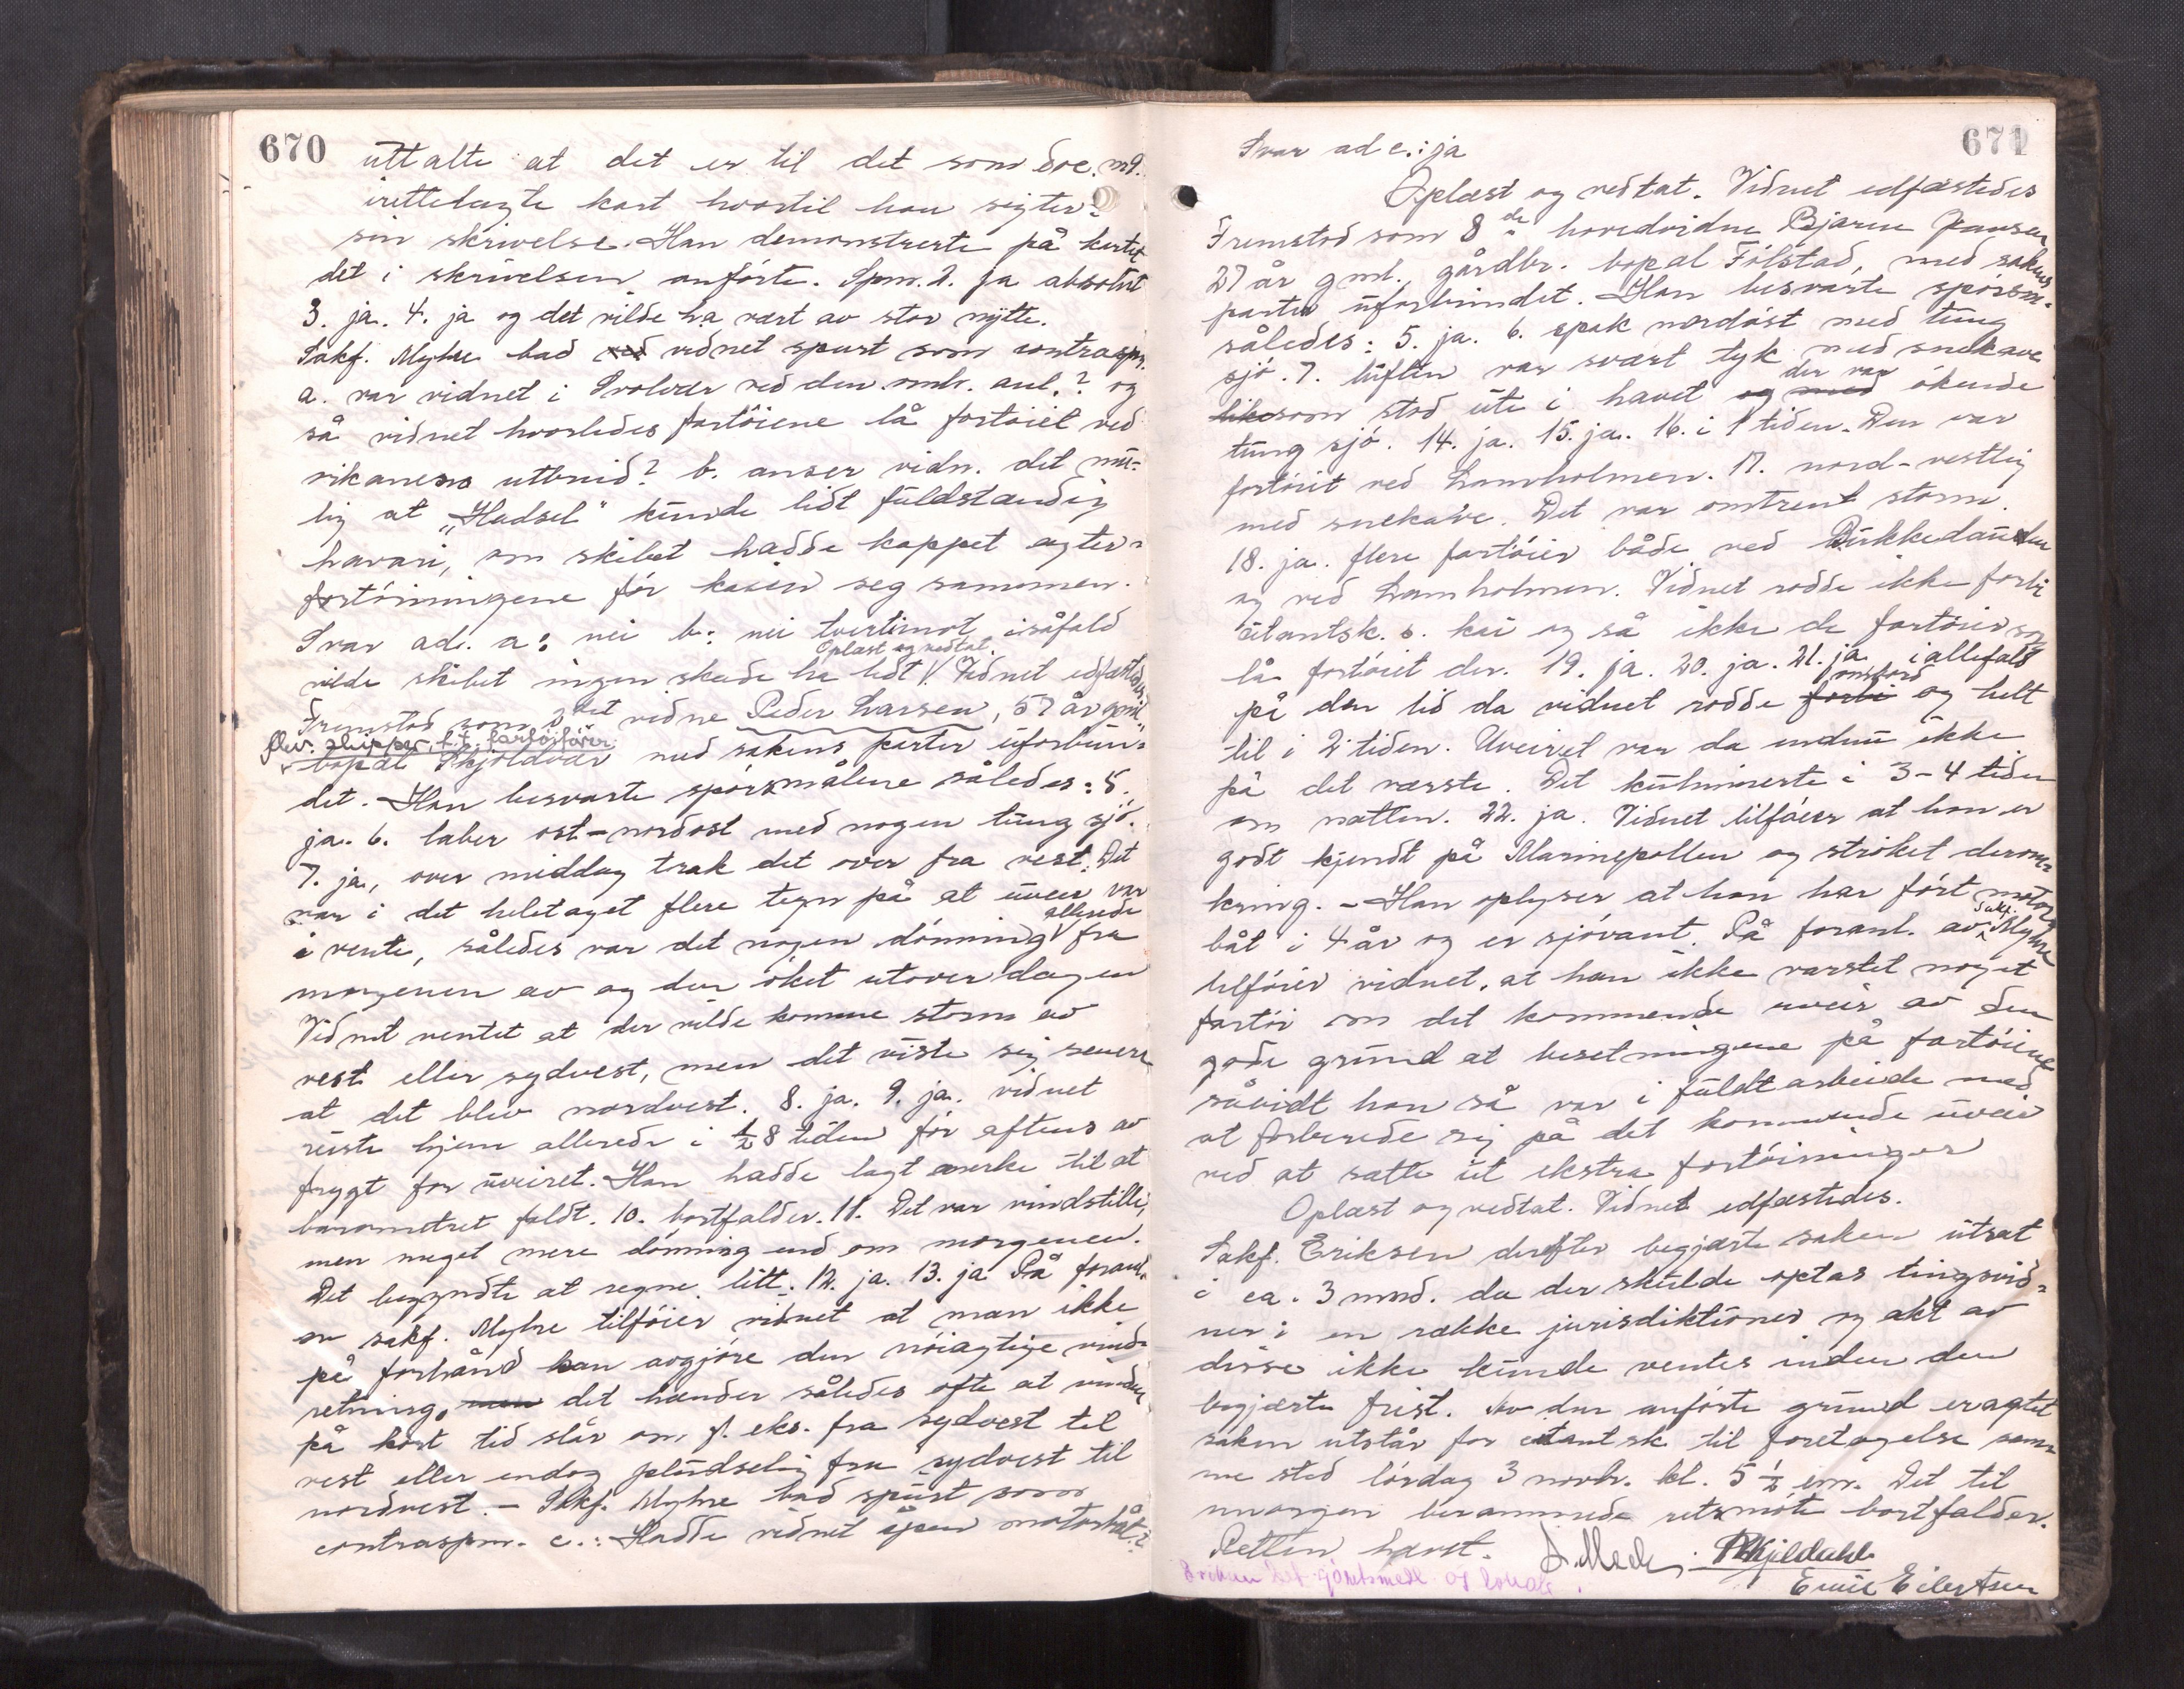 670
uttalte at det er til det som doc. m 9.
irettelagte kart hvortil han sigter i
sin skrivelse. Han demonstrerte på kartet
det i skrivelsen anførte. Spm. 2. ja absolut
3. ja. 4. ja og det vilde ha vært av stor nytte.
Sakf. Myhre bad vidnet spurt som contraspm.
a. var vidnet i Svolvær ved den omh. anl.? og
så vidnet hvorledes fartøiene lå fortøiet ved
orkanens utbrud? b. anser vidn. det mu-
lig at "Hadsel" kunde lidt fuldstændig
havari, om skibet hadde kappet agter-
fortøiningene før kaien seg sammen.
Svar ad. a: nei b: nei tvertimot isåfald
vilde skibet ingen skade ha lidt. Oplæst og vedtat. Vidnet edfæstedes
Fremstod som 7det vidne Peder Larsen, 57 år gml.
flev. skipper, f.t. fartøifører
bopæl Skjoldvær med sakens parter uforbun-
det. Han besvarte spørsmålene således: 5.
ja. 6. laber ost-nordost med nogen tung sjø.
7. ja, over middag trak det over fra vest. Det
var i det heletaget flere tegn på at uveir var
i vente, således var det nogen dønning allerede fra
morgenen av og den øket utover dagen
Vidnet ventet at der vilde komme storm av
vest eller sydvest, men det viste sig senere
at det blev nordvest. 8. ja. 9. ja. vidnet
reiste hjem allerede i ½ 8 tiden før aftens av
frygt for uveiret. Han hadde lagt merke til at
barometret faldt. 10. bortfalder. 11. Det var vindstille,
men meget mere dønning end om morgenen.
Det begyndte at regne litt. 12. ja. 13. ja På foranl.
av sakf. Myhre tilføier vidnet at man ikke
på forhånd kan avgjøre den nøiagtige vind-
retning, men det hænder således ofte at vinden
på kort tid slår om, f. eks. fra sydvest til
vest eller endog pludselig fra sydvest til
nordvest. - Sakf. Myhre bad spurt som
contraspm. c.: Hadde vidnet åpen motorbåt?
671
Svar ad c.: ja
Oplæst og vedtat. Vidnet edfæstedes
Fremstod som 8de hovedvidne Bjarne Jansen
27 år gml. gårdbr. bopæl Følstad, med sakens
parter uforbundet. Han besvarte spørsm.
således: 5. ja. 6. spak nordøst med tung
sjø. 7. luften var svært tyk med snekave
likesom stod ute i havet og med der var økende
tung sjø. 14. ja. 15. ja. 16. i 1 tiden. Den var
fortøiet ved Lamholmen. 17. nord-vestlig
med snekave. Det var omtrent storm.
18. ja. flere fartøier både ved Dukkedamen
og ved Lamholmen. Vidnet rodde ikke forbi
citantsk. s. kai og så ikke de fartøier som
lå fortøiet der. 19. ja. 20. ja. 21. ja iallefald
på den tid da vidnet rodde forbi ombord og helt
til i 2 tiden. Uveiret var da endnu ikke
på det værste. Det kulminerte i 3-4 tiden
om natten. 22. ja. Vidnet tilføier at han er
godt kjendt på Marinepollen og strøket derom-
kring. - Han oplyser at han har ført motor-
båt i 4 år og er sjøvant. På foranl. av Sakf. Myhre
tilføier vidnet, at han ikke varslet noget
fartøi om det kommende uveir av den
gode grund at besetningene på fartøiene
såvidt han så var i fuldt arbeide med
at forberede sig på det kommende uveir
ved at sætte ut ekstra fortøininger
Oplæst og vedtat. Vidnet edfæstedes.
Sakf. Eriksen derefter begjærte saken utsat
i ca. 3 mnd. da der skulde optas tingsvid-
ner i en række jurisdiktioner og akt av
disse ikke kunde ventes inden den
begjærte frist. Av den anførte grund eragtet
saken utstår for citantsk til foretagelse sam-
me sted lørdag 3 novbr. kl. 5 ½ em. Det til
imorgen berammede retsmøte bortfalder.
Retten hævet.
Emil Eilertsen